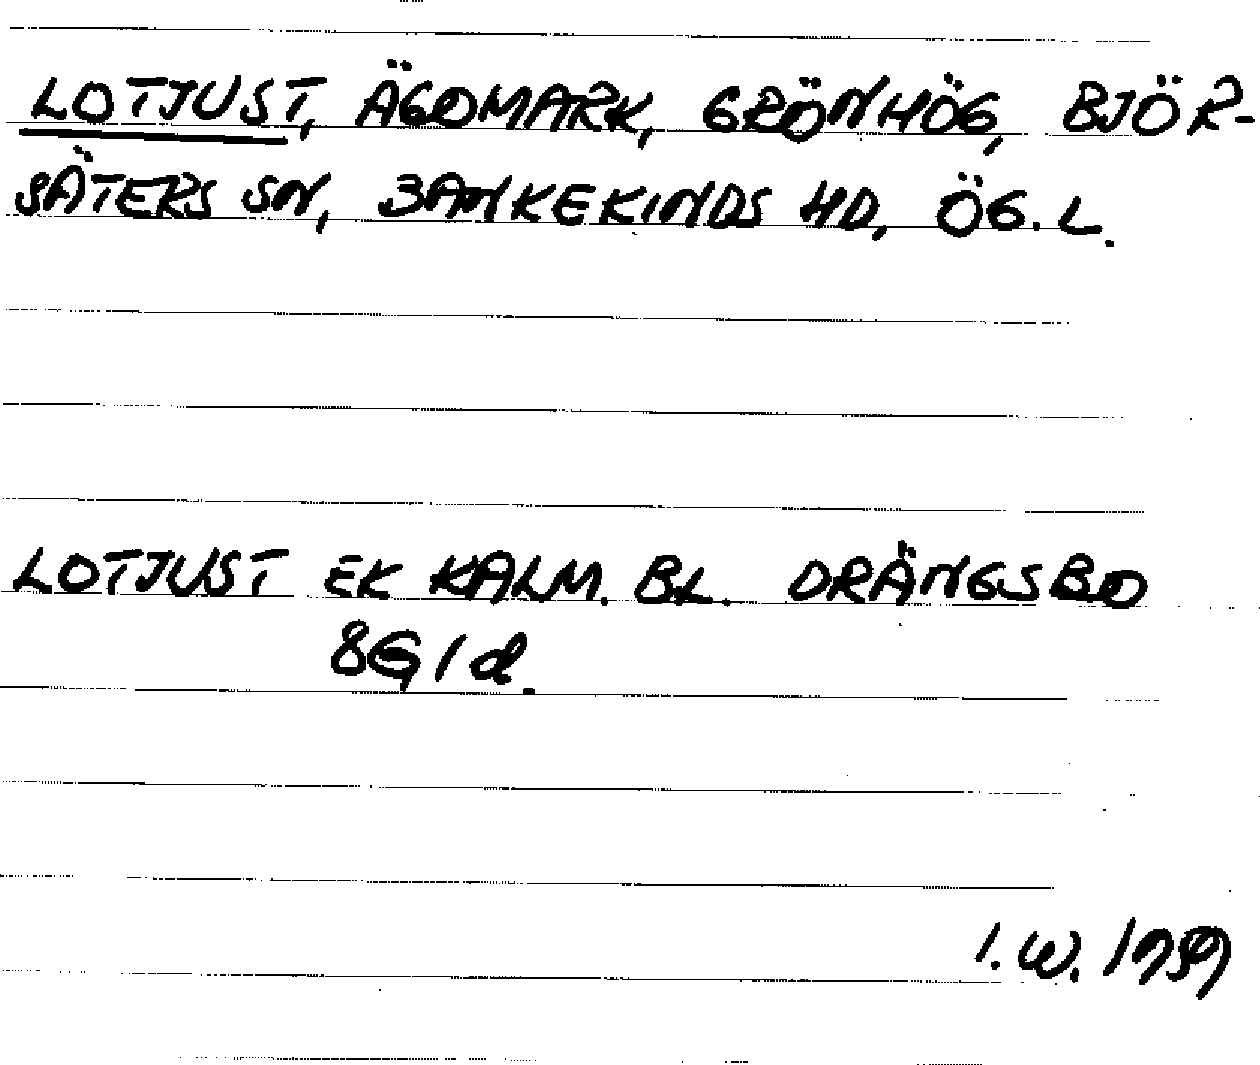 LOTJUST, ÄGOMARK, GRÖNHÖG, BJÖR-
SÄTERS SN, BANKEKINDS HD, ÖG. L.
LOTJUST EK KALM. BL. DRÄNGSBO
8G1d.
I. W. 1959